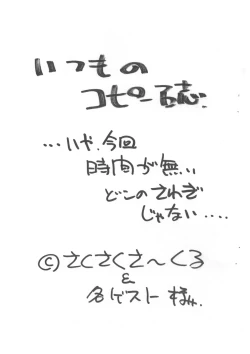 いつもの
コピー誌
…いや、今回
時間が無い
どこのさわぎ
じゃない....
©さくさくさ〜くる
&
各ゲスト様